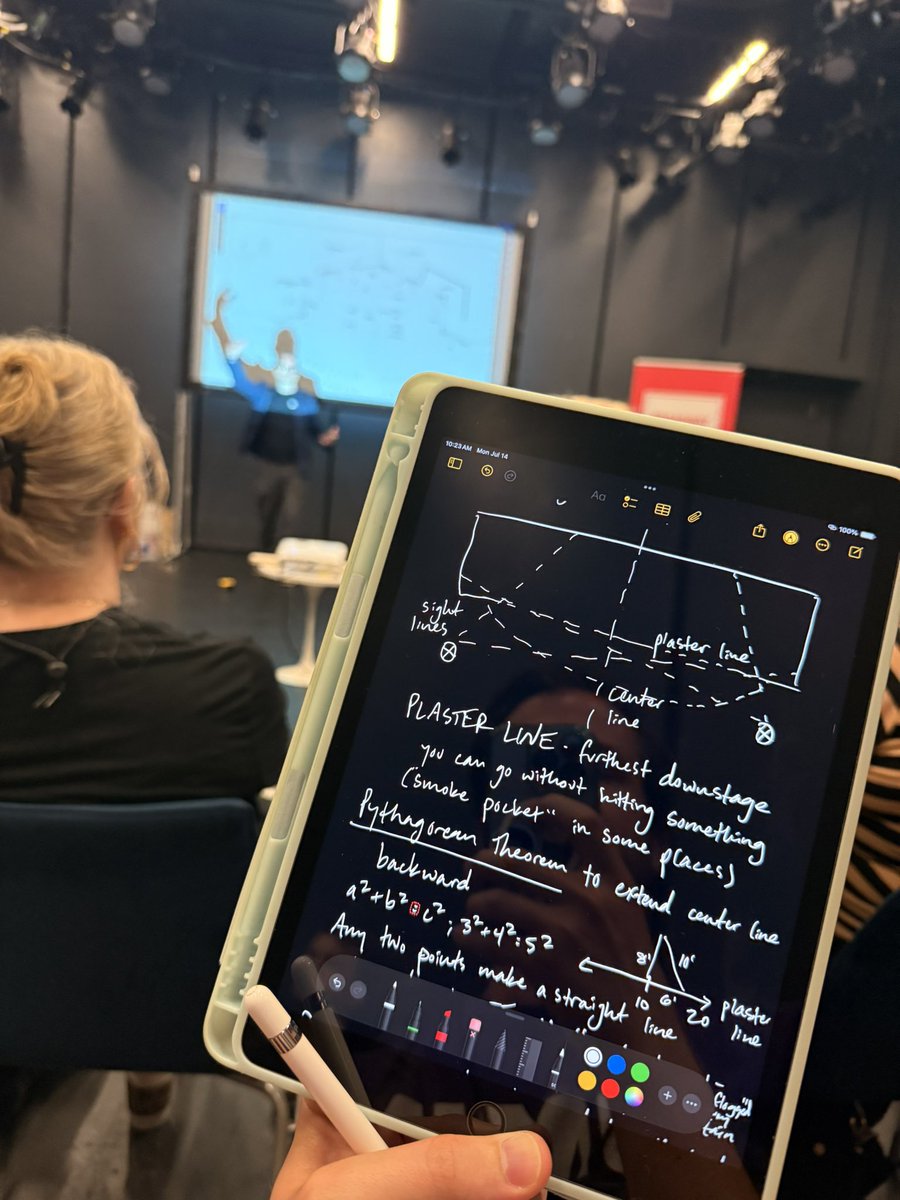 10:23 AM Mon Jul 14
100%
Aa
sight
lines
plaster line
center
line
PLASTER LINE - furthest downstage
you can go without hitting something
("smoke pocket" in some places)
Pythagorean Theorem to extend center line
backward
a²+b²=c²; 3²+4²=5²
8'
10'
10
6'
20
plaster
line
Any two points make a straight line